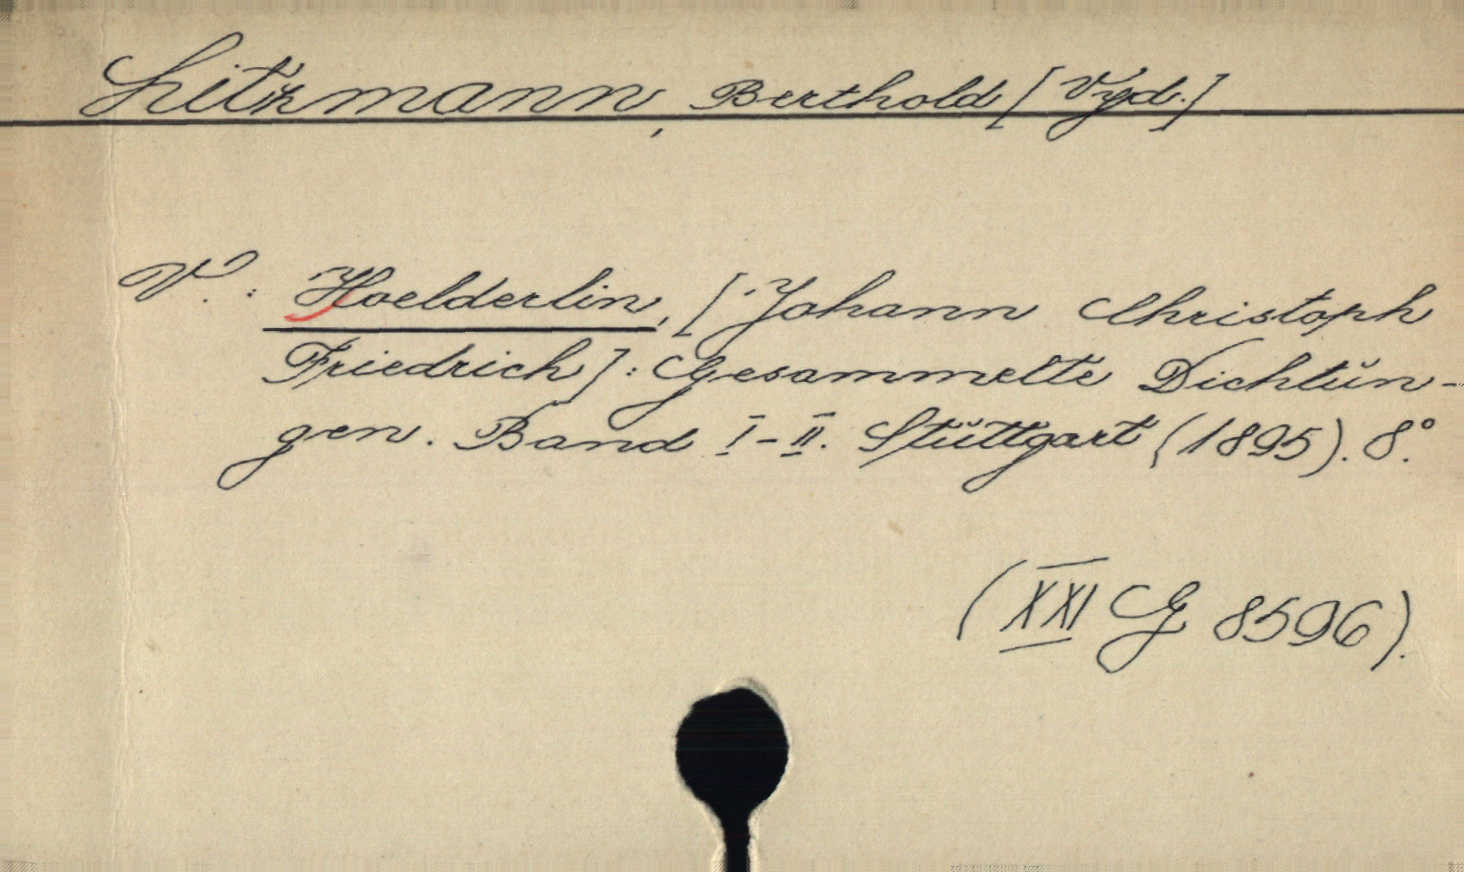 Litzmann, Berthold [Vyd.]
V.: Hoelderlin, [Johann Christoph
Friedrich]: Gesammelte Dichtun-
gen. Band I-II. Stuttgart (1895). 8°.
(XXI G 8596).